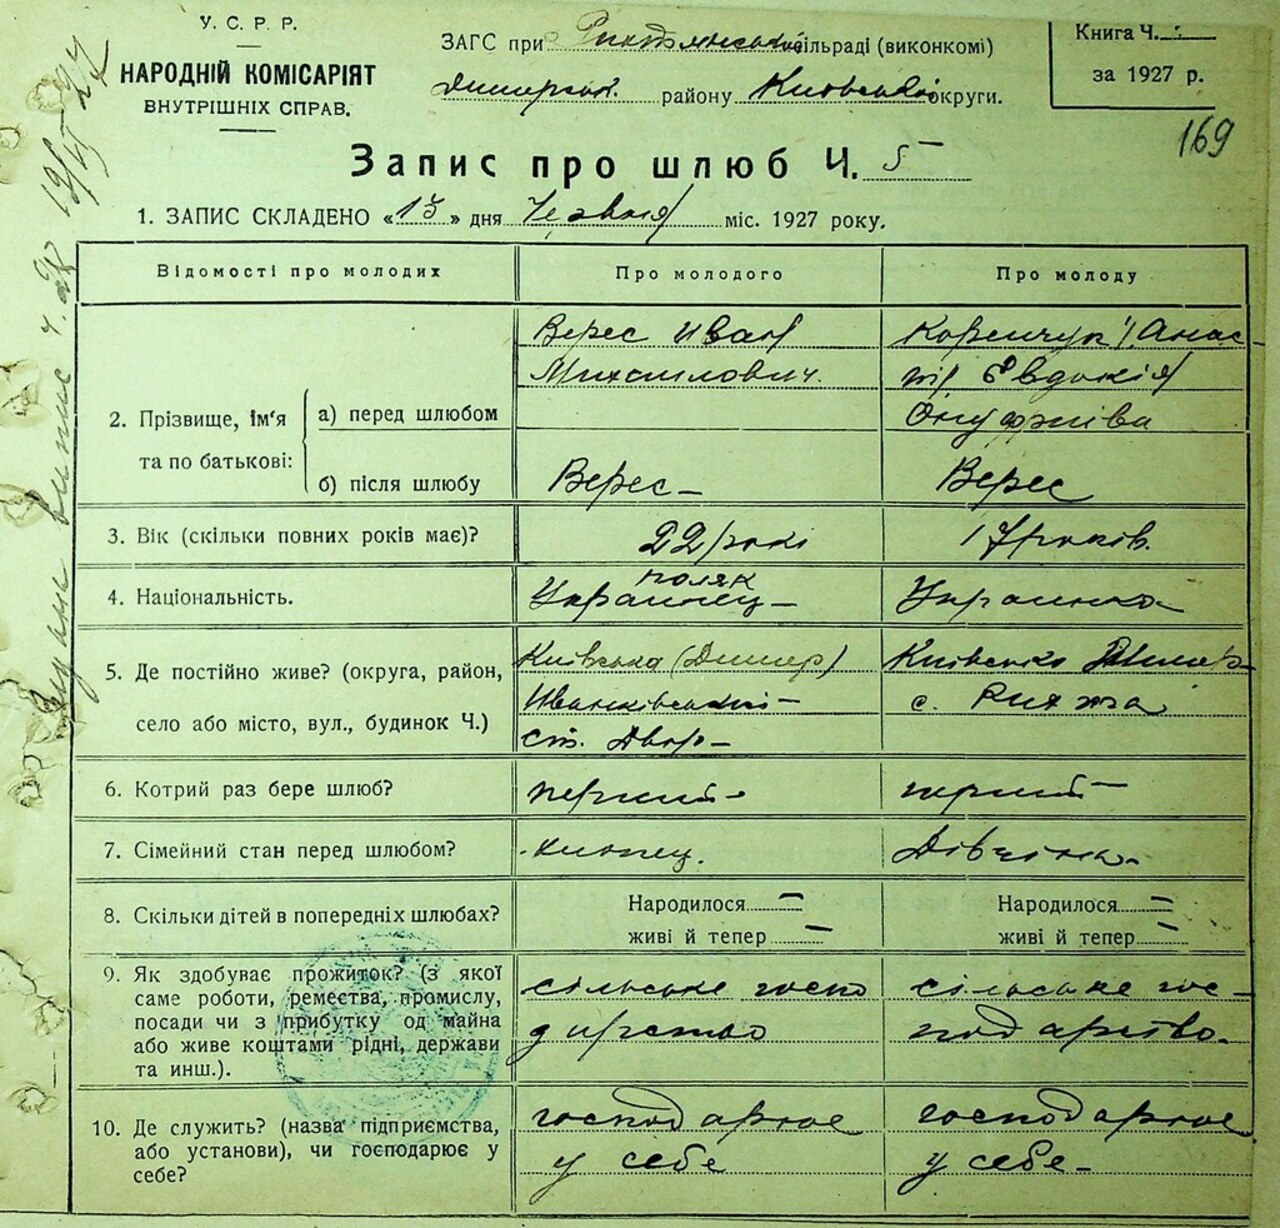 У. С. Р. Р.
НАРОДНІЙ КОМІСАРІЯТ
ВНУТРІШНІХ СПРАВ.
ЗАГС при сільраді (виконкомі)
Димерськ. району Київської округи.
Книга Ч.
за 1927 р.
169
Запис про шлюб Ч. 5
1. ЗАПИС СКЛАДЕНО «13» дня Червня міс. 1927 року.
Відомості про молодих
Про молодого
Про молоду
2. Прізвище, ім'я та по батькові:
а) перед шлюбом
Верес Иван
Михайлович.
Євдокія
Онуфріїва
б) після шлюбу
Верес
Верес
3. Вік (скільки повних років має)?
22 рокі
17 років.
4. Національність.
поляк
Украинец
Украинка
5. Де постійно живе? (округа, район,
село або місто, вул., будинок Ч.)
Київська (Димер)
Иванківський
ст. Двор
Київська Димер
с. Рихта
6. Котрий раз бере шлюб?
перший
перший
7. Сімейний стан перед шлюбом?
хлопец.
Дівчина
8. Скільки дітей в попередніх шлюбах?
Народилося —
живі й тепер —
Народилося —
живі й тепер —
9. Як здобуває прожиток? (з якої
саме роботи, ремества, промислу,
посади чи з прибутку од майна
або живе коштами рідні, держави
та инш.).
сільське госпо
дарство
сільське гос-
подарство.
10. Де служить? (назва підприємства,
або установи), чи господарює у
себе?
господарює
у себе
господарює
у себе